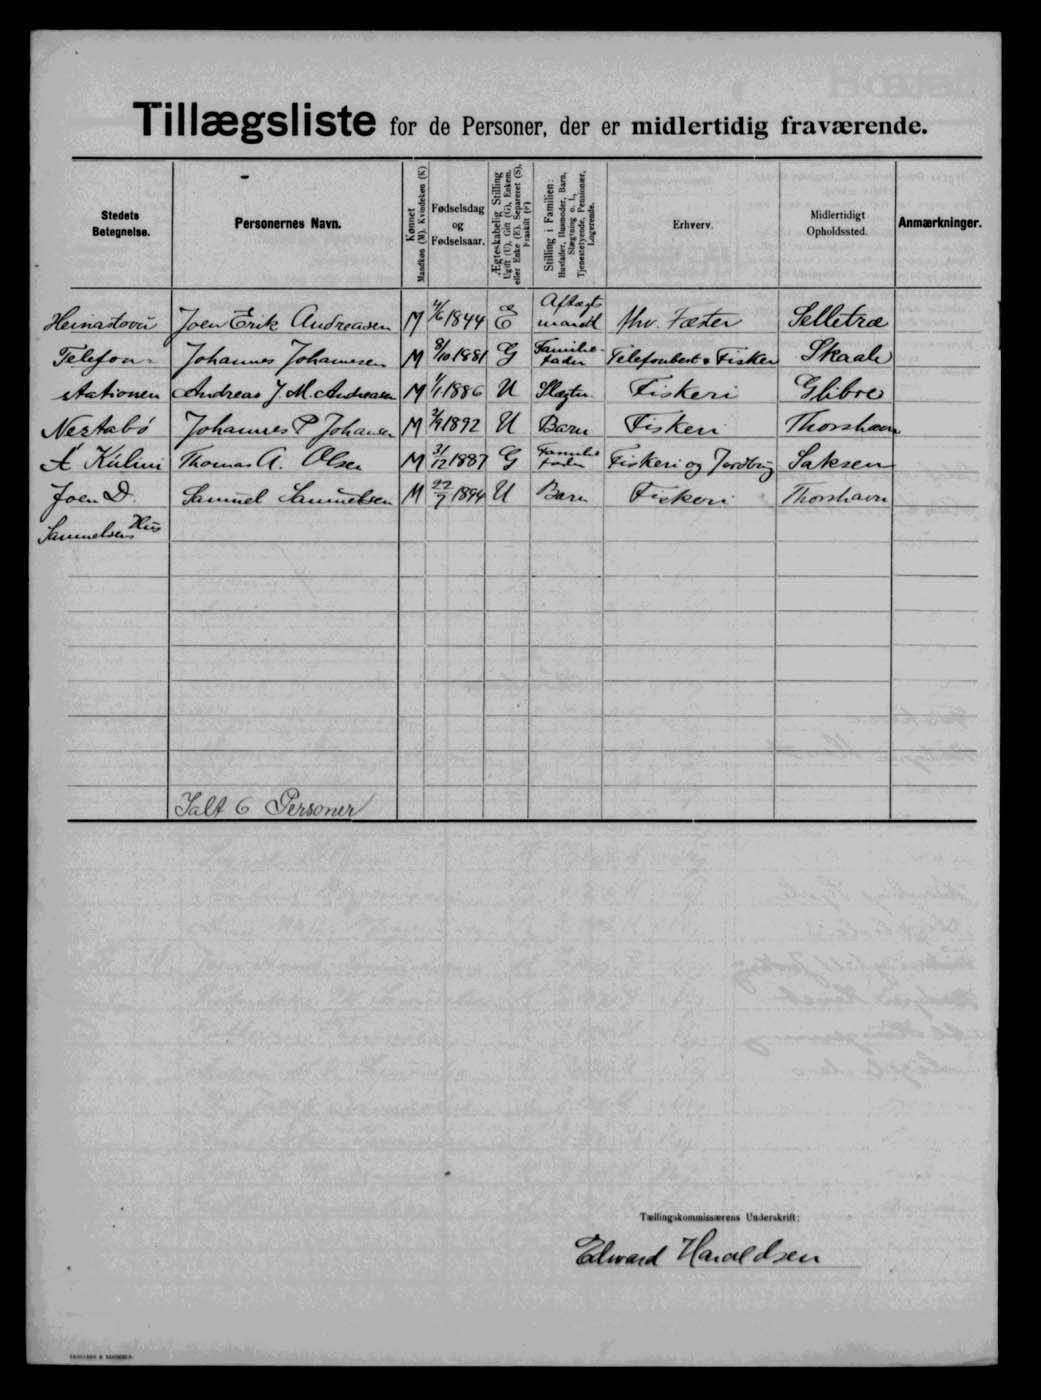 Tillægsliste for de Personer, der er midlertidig fraværende.
Stedets Betegnelse.
Personernes Navn.
Kønnet Mandkøn (M). Kvindekøn (K)
Fødselsdag og Fødselsaar.
Ægteskabelig Stilling Ugift (U), Gift (G), Enkem. eller Enke (E), Separeret (S), Fraskilt (F)
Stilling i Familien: Husfader, Husmoder, Barn, Slægtning o. l., Tjenestetyende, Pensionær, Logerende.
Erhverv.
Midlertidigt Opholdssted.
Anmærkninger.
Heinastovu Joen Erik Andreasen M 4/6 1844 E Aftægtsmand fhv. Fæster Selletræ
Telefon- Johannes Johannesen M 8/10 1881 G Familiefader Telefonbest. & Fisker Skaale
stationen Andreas J. M. Andreasen M 1/1 1886 U Slægtn. Fiskeri Glibre
Nestabø Johannes P Johansen M 1892 U Barn Fiskeri Thorshavn
Á Kúlini Thomas A. Olsen M 31/12 1887 G Familiefader Fiskeri og Jordbrug Saksen
Joen D. Samuel Samuelsen M 22/7 1894 U Barn Fiskeri Thorshavn
Samuelsens Hus
Ialt 6 Personer
Tællingskommissærens Underskrift:
Edward Haraldsen